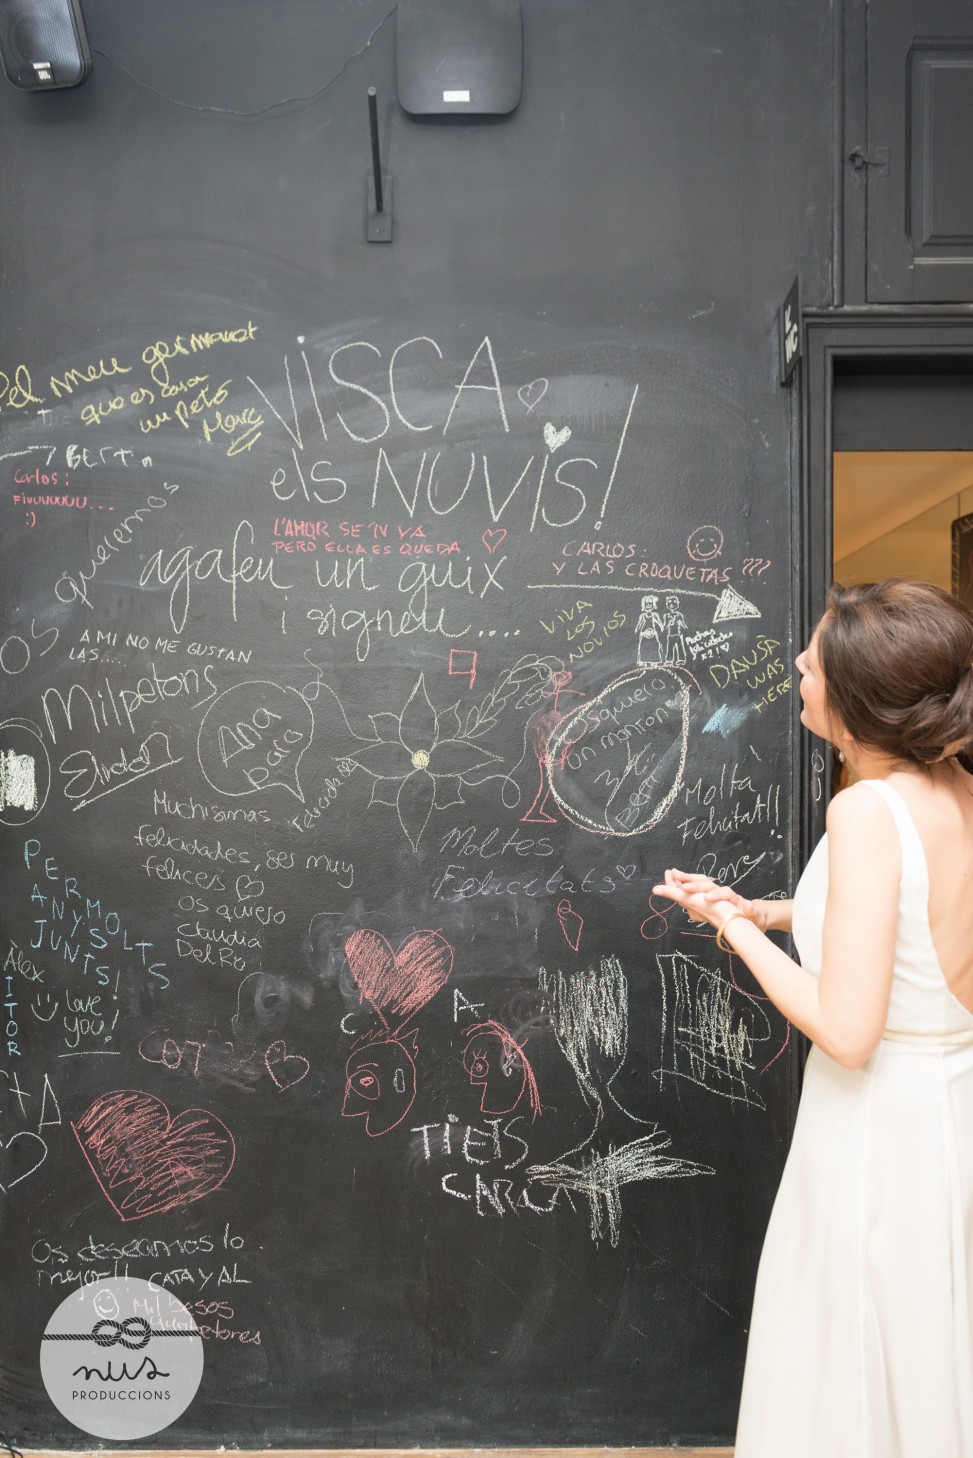 Pel meu germanet
que es casa
un petó
Marc
VISCA
els NUVIS!
agafeu un guix
i signeu....
L'AMOR SE'N VA
PERO ELLA ES QUEDA
CARLOS:
Y LAS CROQUETAS ???
BERT
Carlos:
FIUUUUUU...
:)
queremos
OS
A MI NO ME GUSTAN
LAS.....
VIVA
LOS
NOVIOS
Muchas
felicidades
x2!
DAUSÀ
WAS
HERE
WC
Mil petons
Ana
Felicidades
os quiero
un montón
Muchisimas
felicidades, ser muy
felices
os quiero
Claudia
Del Rio
Moltes
Felicitats
Molta
Felicitat!!
PER
ANYS
MOLTS
JUNTS!
AITOR
Àlex
love
you!
C
A
TIETS
CARLA
Os deseamos lo
mejor!! CATA Y AL
Mil besos
nus
PRODUCCIONS